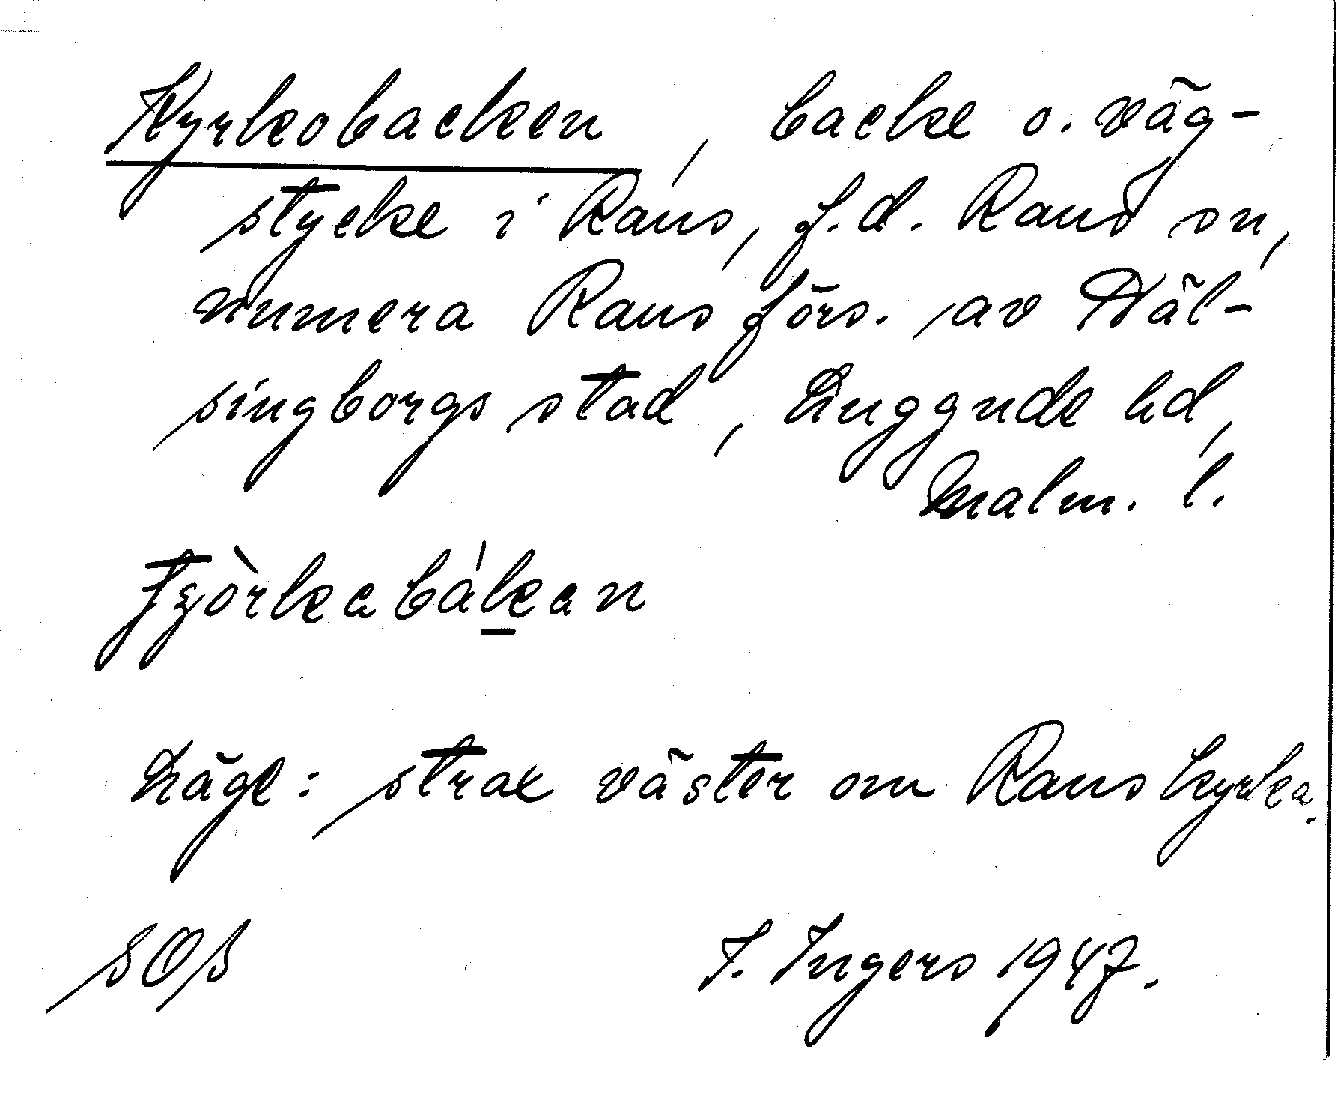 Kyrkobacken, backe o. väg-
stycke i Raus, f.d. Raus sn,
numera Raus förs. av Häl-
singborgs stad, Luggude hd,
Malm. l.
Läge: strax väster om Raus kyrka.
SOS I. Ingers 1947.